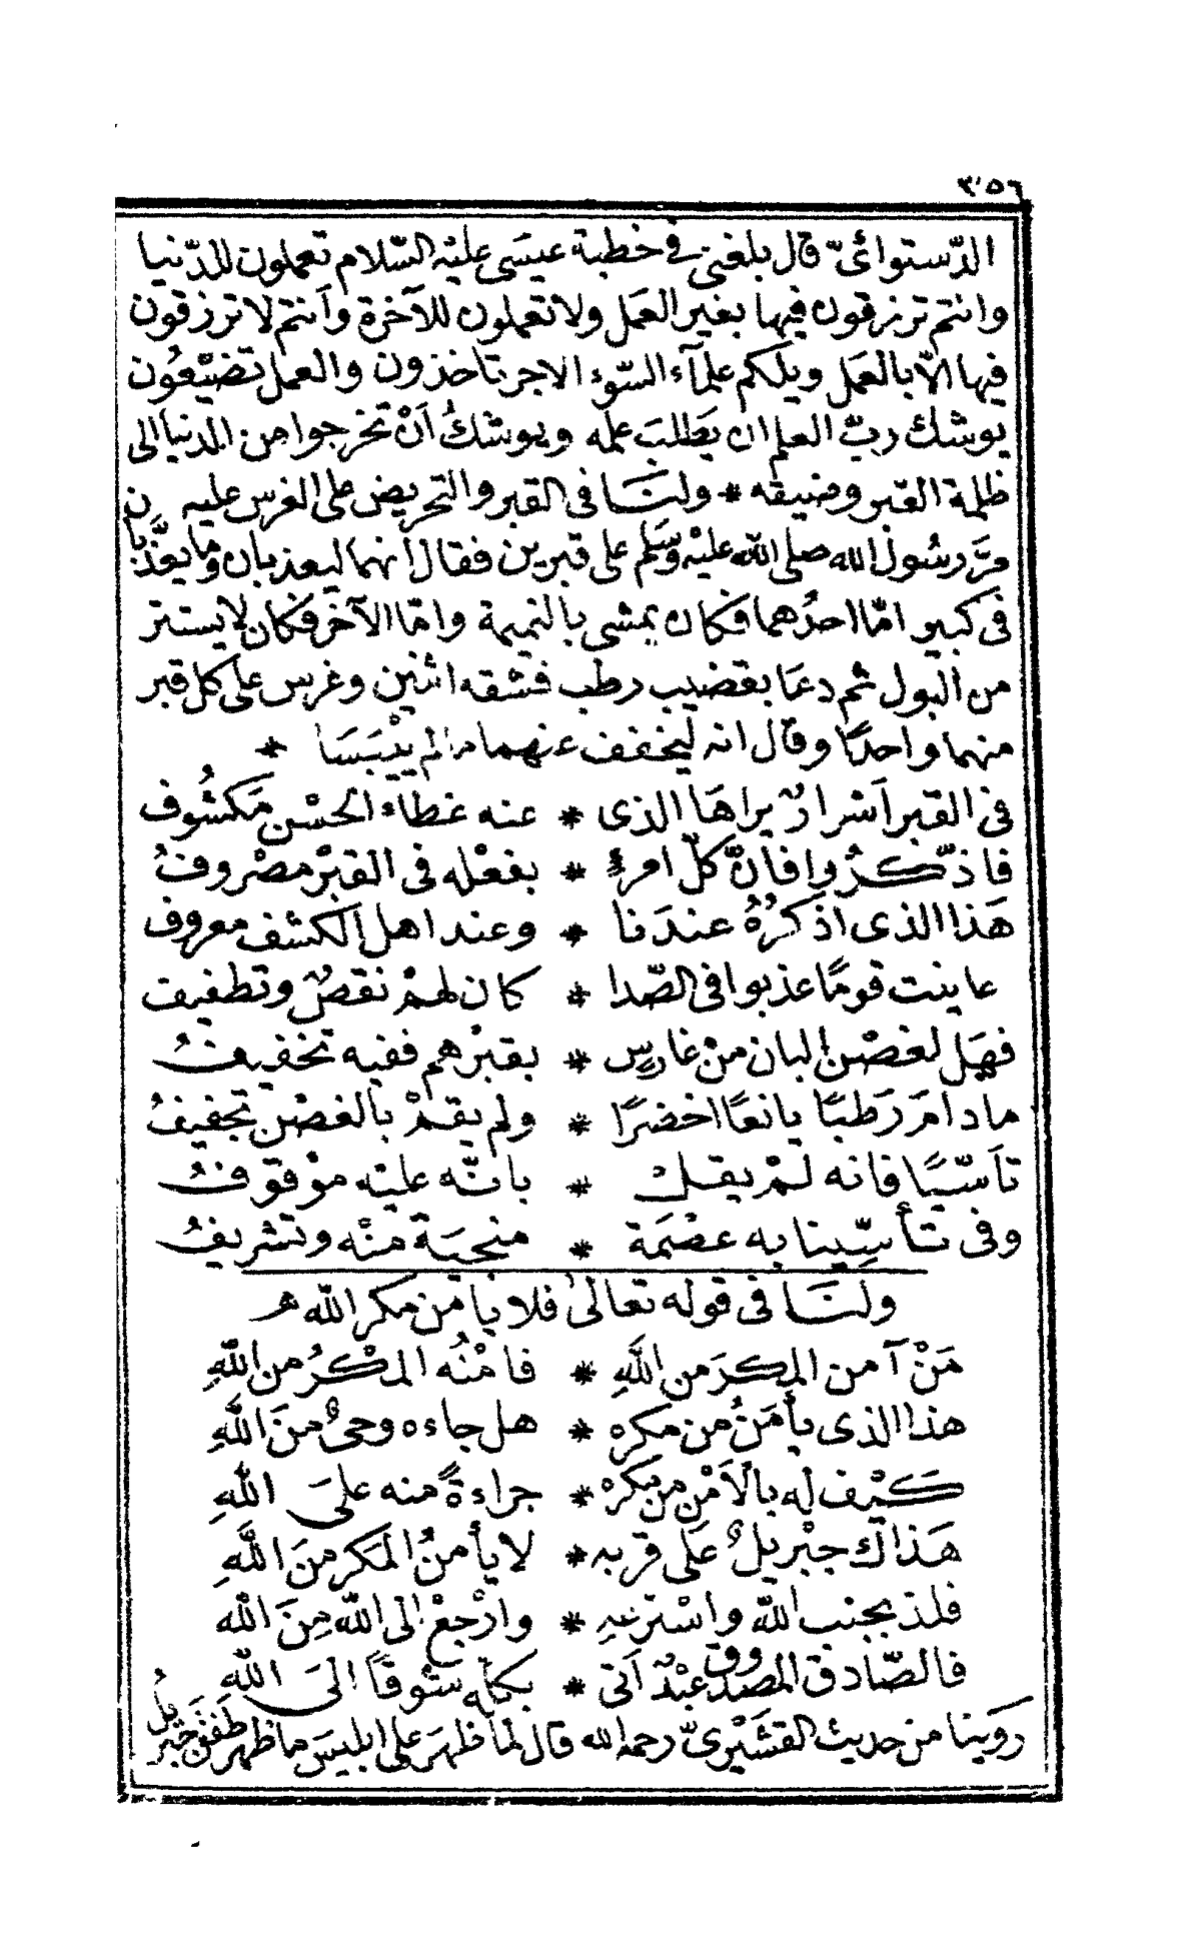 ٣٥٦
الدّستوائىّ قال بلغنى فى خطبة عيسَى عليْه السّلام تعملون للدّنيا
وانتم ترزقون فيها بغير العمَل ولا تعملون للآخرة وأنتم لا ترزقون
فيها الاّ بالعمَل ويلكم علمآء السّوء الاجر تاخذون والعمل تضيّعُون
يوشك ربّ العلم ان يَطلبَ عمله ويوشكُ أنْ تخرجوا من الدنيا إلى
ظلمة القبر وضيقه * ولنَا فى القبر والتحريض على الغرس عليه
مرَّ رسُول الله صلى الله عليْه وسَلم على قبرين فقال انهما ليعذبان وما يعذَّبان
فى كبير امّا احدُهما فكان يمشى بالنميمة وامّا الآخر فكان لا يستتر
من البول ثم دعَا بقضيب رطب فشقه اثنين وغرس على كل قبر
منهما واحدًا وقال انه ليخفف عنهما ما لم ييْبَسَا *
فى القبر أسْرارٌ يراهَا الذى * عنه غطاء الحسْن مَكشُوف
فاذّكرُوا فانّ كلّ امرئٍ * بفعْله فى القبْر مصْروفُ
هَذا الذى اذكرُهُ عندَنا * وعند اهل الكشف معروف
عاينت قومًا عذبوا فى الصّدا * كان لهمْ نقصٌ وتطفيف
فهَل لغصْن البان منْ غارسٍ * بقبْرهم ففيه تخفيفُ
ما دامَ رَطبًا يانعًا اخضرًا * ولم يقمْ بالغصْن تجفيفُ
تأسّيًا فانه لمْ يقلْ * بانّه عليْه موْقوفُ
وفى تأسِّينا به عصْمَة * منحيَة منْه وتشريفُ
ولنَا فى قوله تعالىٰ فلا يأمَن مكر الله
مَنْ آمن المكرَ من اللَّهِ * فامْنُه المكْرُ من اللَّهِ
هذا الذى يأمَنُ من مكره * هل جاءه وحىٌ منَ اللَّهِ
كَيْف له بالأمْن من مكره * جراءةً منه علىَ اللَّهِ
هَذاك جبْريلٌ عَلى قربه * لا يأمنُ المَكر منَ اللَّهِ
فلذ بجنب اللَّه واسْترعهِ * وارْجعْ الى اللَّه مِنَ اللَّه
فالصّادق المصْدوق عبْدٌ أتى * بكلّه شوْقاً الىَ اللَّهِ
روَينا من حديث القشَيْرىّ رحمه الله قال لما ظهرَ على ابليسَ ما ظهر طَفقَ جبْريلُ